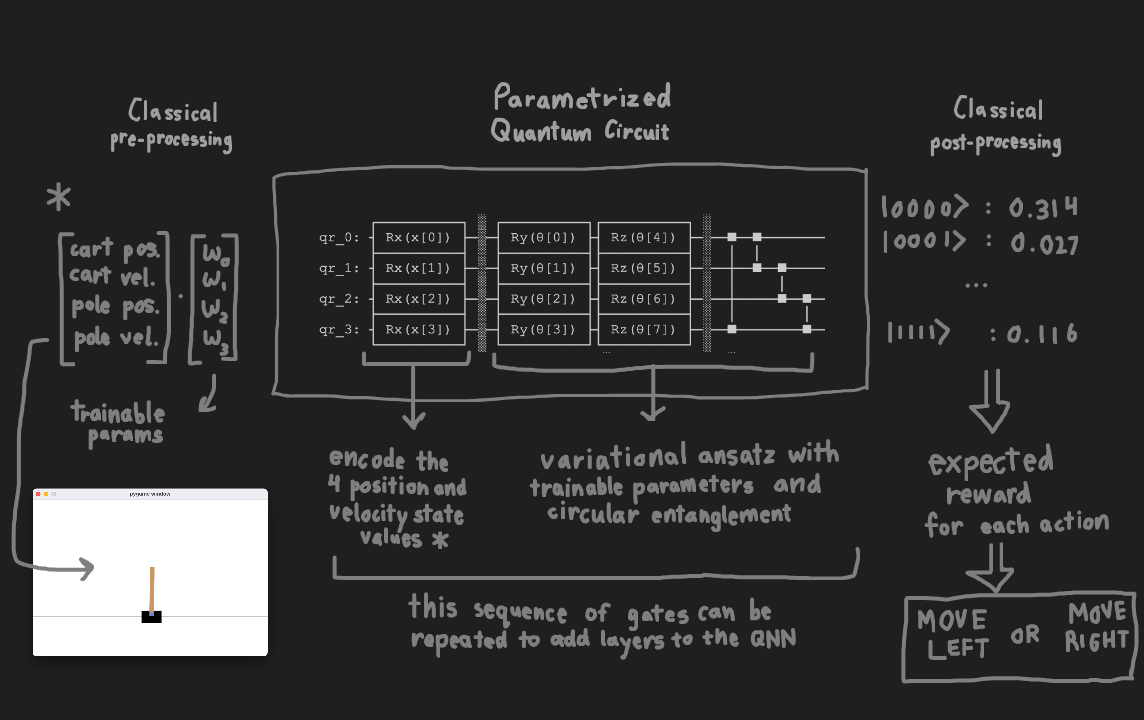 Classical
pre-processing
*
cart pos.
cart vel.
pole pos.
pole vel.
·
W0
W1
W2
W3
trainable
params
pygame window
Parametrized
Quantum Circuit
qr_0: Rx(x[0]) Ry(θ[0]) Rz(θ[4])
qr_1: Rx(x[1]) Ry(θ[1]) Rz(θ[5])
qr_2: Rx(x[2]) Ry(θ[2]) Rz(θ[6])
qr_3: Rx(x[3]) Ry(θ[3]) Rz(θ[7])
... ...
encode the
4 position and
velocity state
values *
variational ansatz with
trainable parameters and
circular entanglement
this sequence of gates can be
repeated to add layers to the QNN
Classical
post-processing
|0000> : 0.314
|0001> : 0.027
...
|1111> : 0.116
expected
reward
for each action
MOVE
LEFT
OR
MOVE
RIGHT